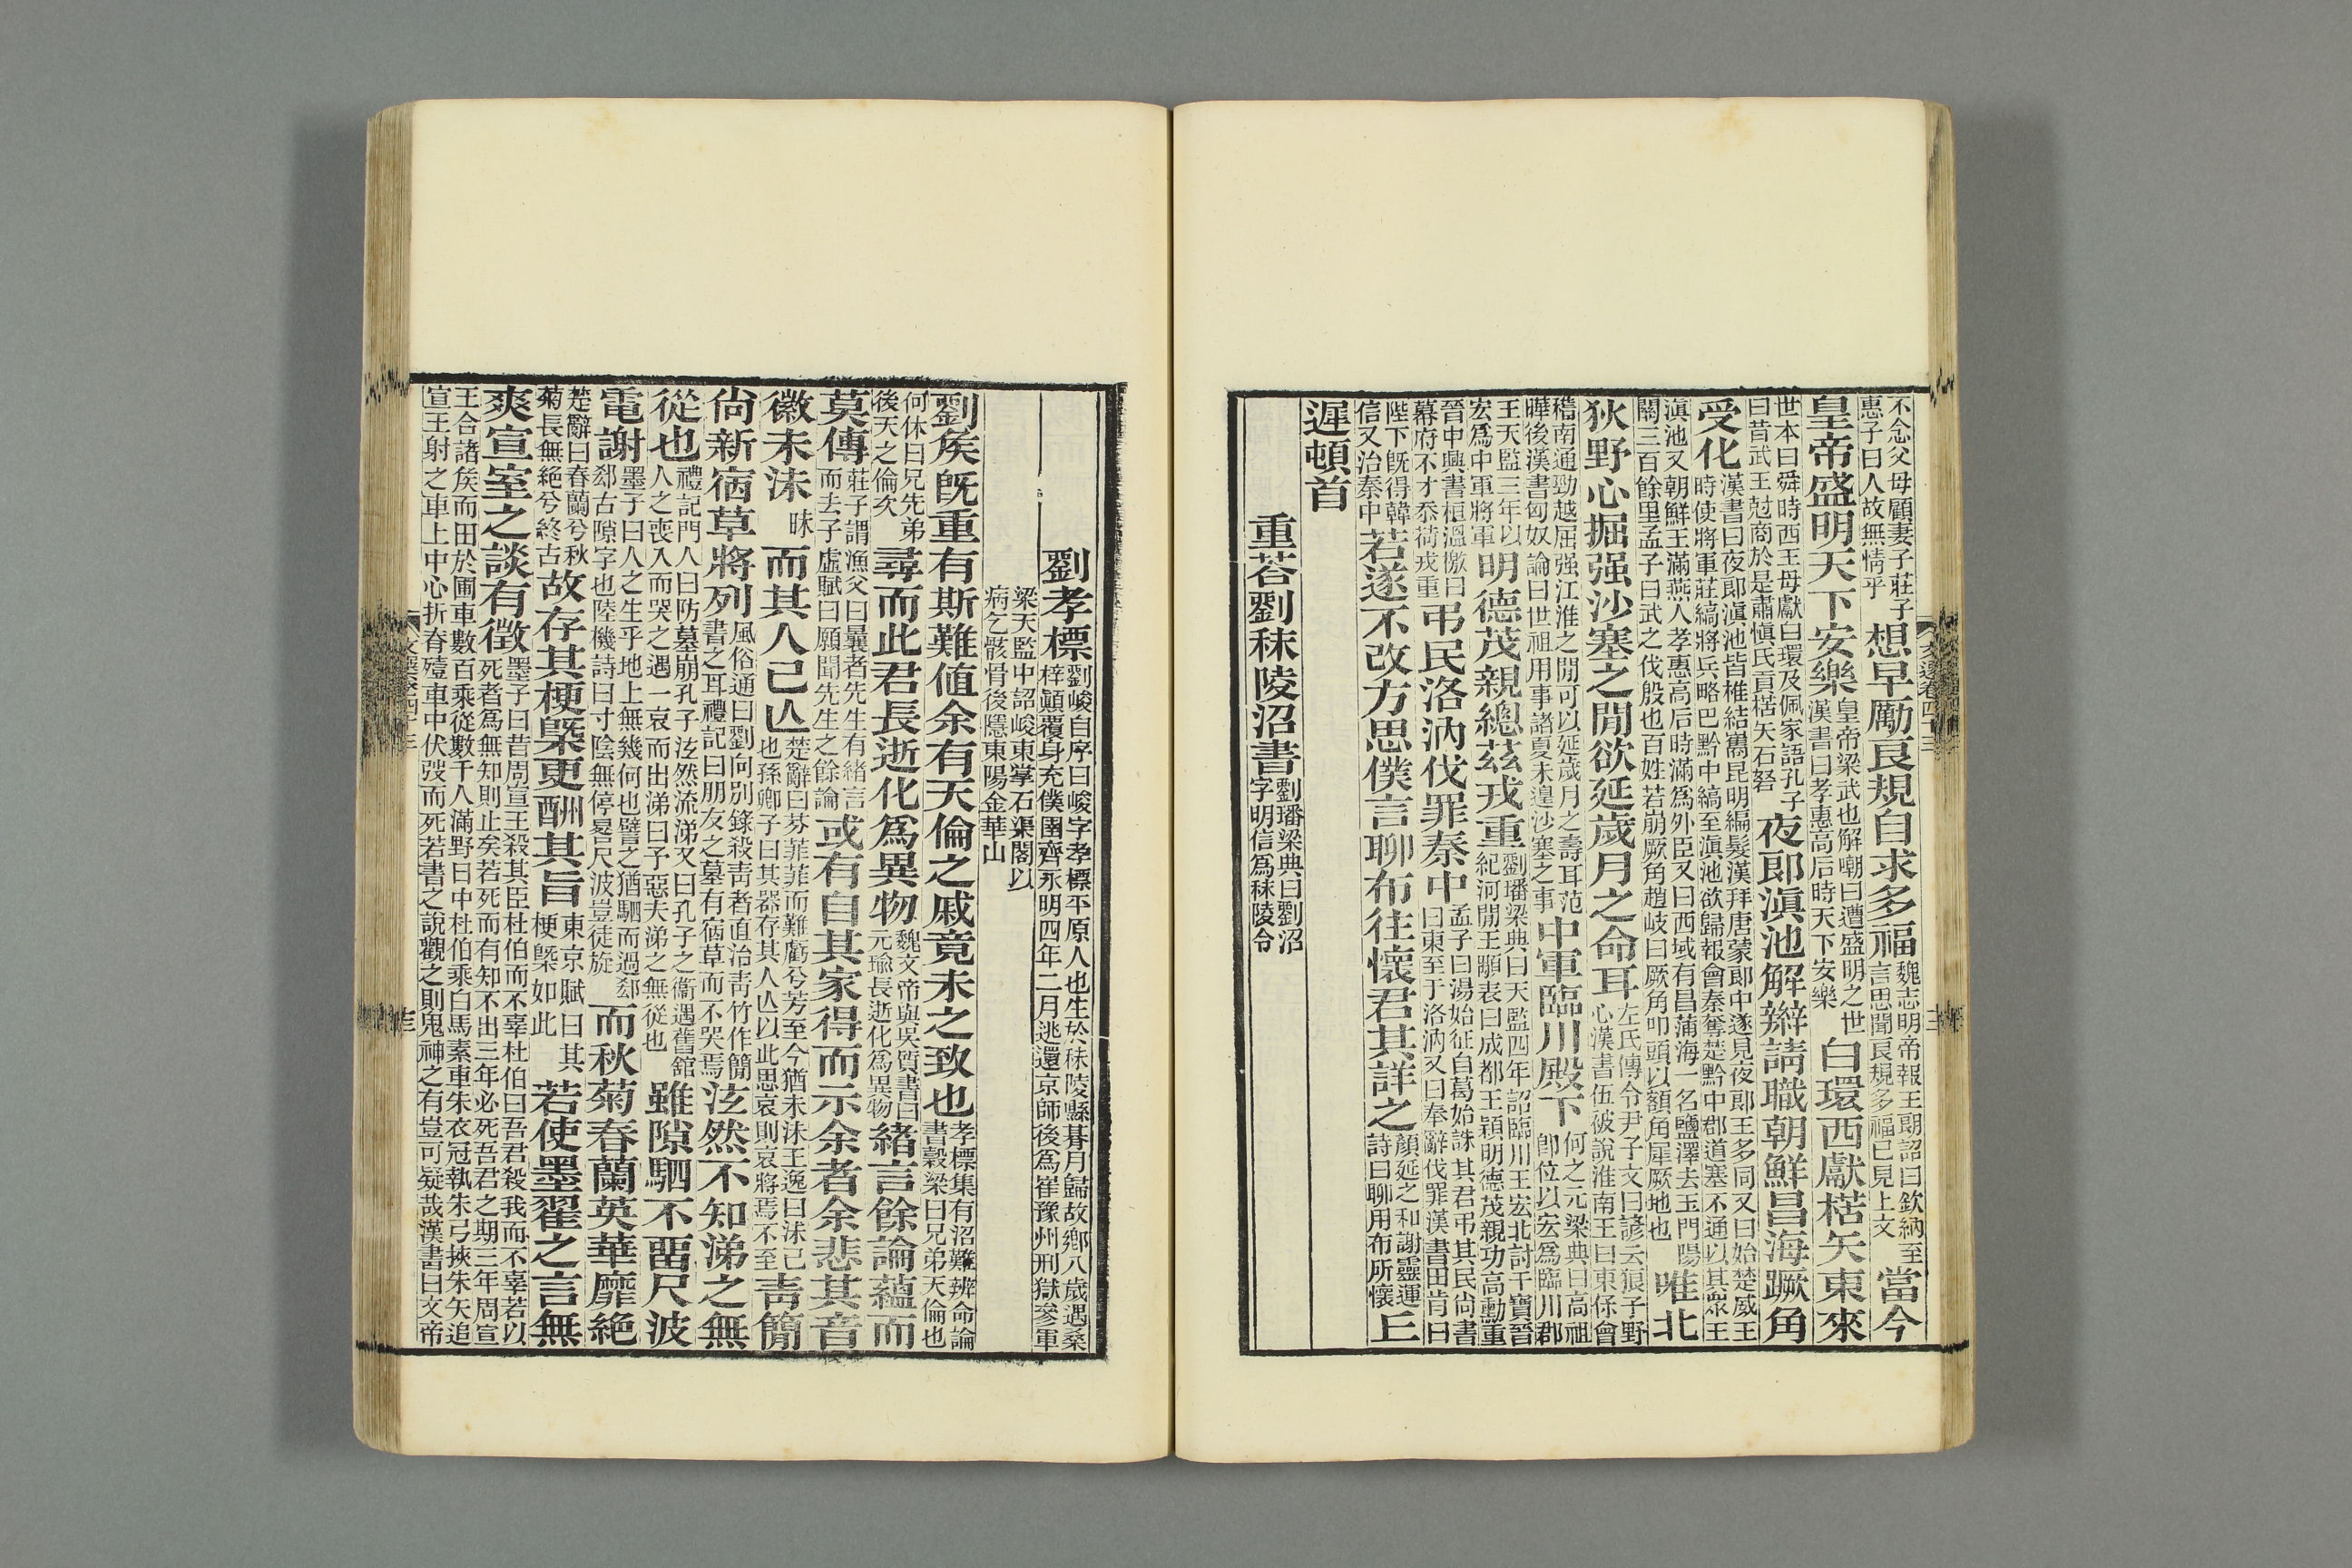 不念父母顧妻子莊子惠子曰人故無情乎想早勵良規自求多福魏志明帝報王朗詔曰欽納至言思聞良規多福已見上文當今
皇帝盛明天下安樂皇帝梁武也解嘲曰遭盛明之世漢書曰孝惠高后時天下安樂白環西獻楛矢東來
世本曰舜時西王母獻白環及佩家語孔子曰昔武王尅商於是肅愼氏貢楛矢石砮夜郎滇池解辮請職朝鮮昌海蹶角
受化漢書曰夜郎滇池皆椎結嶲昆明編髮漢拜唐蒙郎中遂見夜郎王多同又曰始楚威王時使將軍莊縞將兵略巴黔中縞至滇池欲歸報會秦奪楚黔中郡道塞不通以其衆王
滇池又朝鮮王滿燕人孝惠高后時滿爲外臣又曰西域有昌蒲海一名鹽澤去玉門陽關三百餘里孟子曰武之伐殷也百姓若崩厥角趙岐曰厥角叩頭以額角犀厥地也唯北
狄野心掘强沙塞之閒欲延歲月之命耳左氏傳令尹子文曰諺云狼子野心漢書伍被說淮南王曰東保會
稽南通勁越屈强江淮之閒可以延歲月之壽耳范曄後漢書匈奴論曰世祖用事諸夏未遑沙塞之事中軍臨川殿下何之元梁典曰高祖卽位以宏爲臨川郡
王天監三年以宏爲中軍將軍明德茂親總茲戎重劉璠梁典曰天監四年詔臨川王宏北討干寶晉紀河閒王顒表曰成都王穎明德茂親功高勳重
晉中興書桓溫檄曰幕府不才忝荷戎重弔民洛汭伐罪秦中孟子曰湯始征自葛始誅其君弔其民尙書曰東至于洛汭又曰奉辭伐罪漢書田肯曰
陛下旣得韓信又治秦中若遂不改方思僕言聊布往懷君其詳之顏延之和謝靈運詩曰聊用布所懷丘
遲頓首
重荅劉秣陵沼書劉璠梁典曰劉沼字明信爲秣陵令
劉孝標劉峻自序曰峻字孝標平原人也生於秣陵縣朞月歸故鄉八歲遇桑梓顛覆身充僕圉齊永明四年二月逃還京師後爲崔豫州刑獄參軍
梁天監中詔峻東掌石渠閣以病乞骸骨後隱東陽金華山
劉矦旣重有斯難値余有天倫之戚竟未之致也孝標集有沼難辨命論書穀梁曰兄弟天倫也
何休曰兄先弟後天之倫次尋而此君長逝化爲異物魏文帝與吳質書曰元瑜長逝化爲異物緒言餘論蘊而
莫傳莊子謂漁父曰曩者先生有緒言而去子虛賦曰願聞先生之餘論或有自其家得而示余者余悲其音
徽未沬昧而其人已亾楚辭曰芬菲菲而難虧兮芳至今猶未沬王逸曰沬已也孫卿子曰其器存其人亾以此思哀則哀將焉不至靑簡
尙新宿草將列風俗通曰劉向別錄殺靑者直治靑竹作簡書之耳禮記曰朋友之墓有宿草而不哭焉泫然不知涕之無
從也禮記門人曰防墓崩孔子泫然流涕又曰孔子之衞遇舊館人之喪入而哭之遇一哀而出涕曰予惡夫涕之無從也雖隙駟不畱尺波
電謝墨子曰人之生乎地上無幾何也譬之猶駟而過郄郄古隙字也陸機詩曰寸陰無停晷尺波豈徒旋而秋菊春蘭英華靡絕
楚辭曰春蘭兮秋菊長無絕兮終古故存其梗槩更酬其旨東京賦曰其梗槩如此若使墨翟之言無
爽宣室之談有徵墨子曰昔周宣王殺其臣杜伯而不辜杜伯曰吾君殺我而不辜若以死者爲無知則止矣若死而有知不出三年必死吾君之期三年周宣
王合諸矦而田於圃車數百乘從數千人滿野日中杜伯乘白馬素車朱衣冠執朱弓挾朱矢追宣王射之車上中心折脊殪車中伏弢而死若書之說觀之則鬼神之有豈可疑哉漢書曰文帝